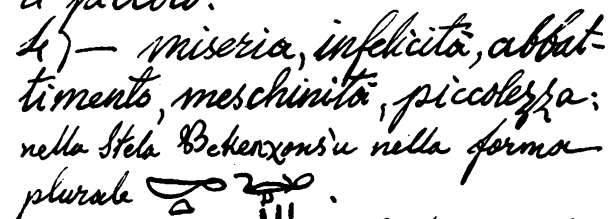 e piccolo.
4) — miseria, infelicità, abbat-
timento, meschinità, piccolezza:
nella Stela Bekenxonsu nella forma
plurale